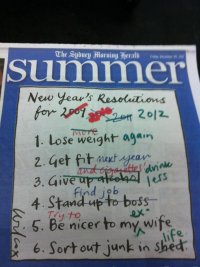 The Sydney Morning Herald
summer
New Year's Resolutions
for 2009 2010 2011 2012
more
1. Lose weight again
2. Get fit next year
and cigarettes drink
3. Give up alcohol less
find job
4. Stand up to boss
Try to ex-
5. Be nicer to my wife
life.
6. Sort out junk in shed.
Wilcox